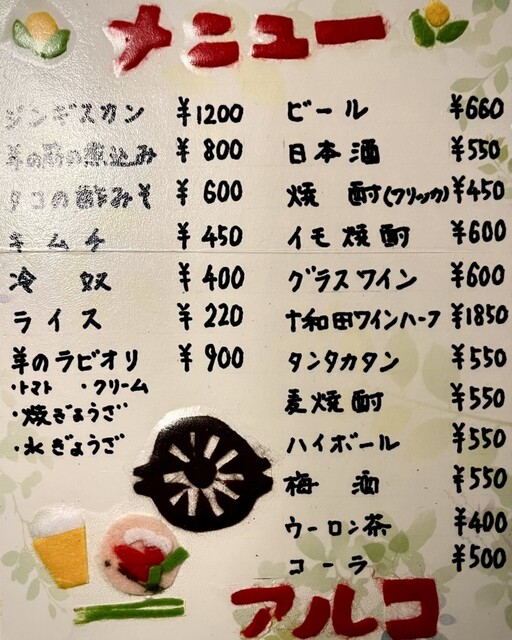 メニュー
ジンギスカン ¥1200
羊の の煮込み ¥800
タコの酢みそ ¥600
キムチ ¥450
冷奴 ¥400
ライス ¥220
羊のラビオリ ¥900
・トマト ・クリーム
・焼ぎょうざ
・水ぎょうざ
ビール ¥660
日本酒 ¥550
焼酎(フリッカ) ¥450
イモ焼酎 ¥600
グラスワイン ¥600
十和田ワインハーフ ¥1850
タンタカタン ¥550
麦焼酎 ¥550
ハイボール ¥550
梅酒 ¥550
ウーロン茶 ¥400
コーラ ¥500
アルコ